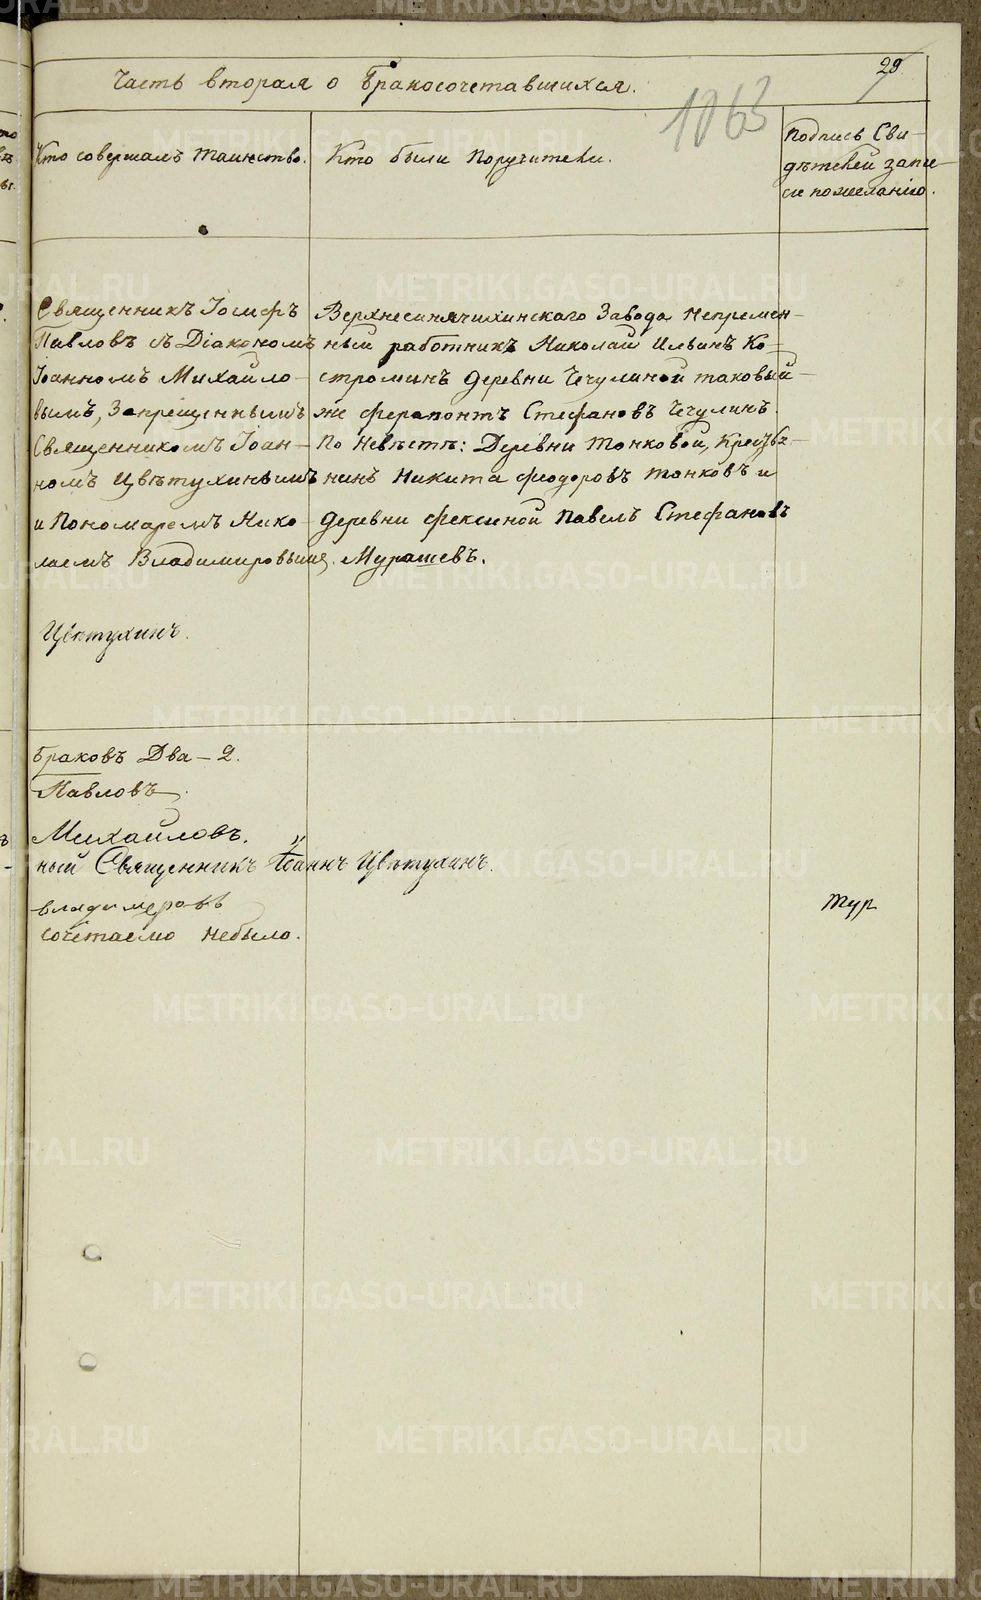 29
Часть вторая о бракосочетавшихся.
1063
Кто совершалъ таинство.
Кто были поручители.
Подпись Сви-
дѣтелей запи
си пожеланію.
Священникъ Іосифъ
Павловъ съ Діакономъ
Іоанномъ Михайло-
вымъ, Запрещеннымъ
Священникомъ Іоан-
номъ Цвѣтухинымъ
и Пономаремъ Нико-
лаемъ Владимировымъ.
Цвѣтухинъ.
Верхнесинячихинскаго Завода непремен-
ный работникъ Николай Ильинъ Ко-
строминъ Деревни Чечулиной таковый-
же Ферапонтъ Стефановъ Чечулинъ.
По Невѣстѣ: Деревни Тонковой, Кресть-
нинъ Никита Феодоровъ Тонковъ и
Деревни Фексиной Павелъ Стефановъ
Мурашевъ.
Браковъ Два - 2.
Павловъ.
Михайловъ.
ный Священникъ Іоаннъ Цвѣтухинъ.
Владимеровъ
сочетаемо небыло.
тур
METRIKI.GASO-URAL.RU